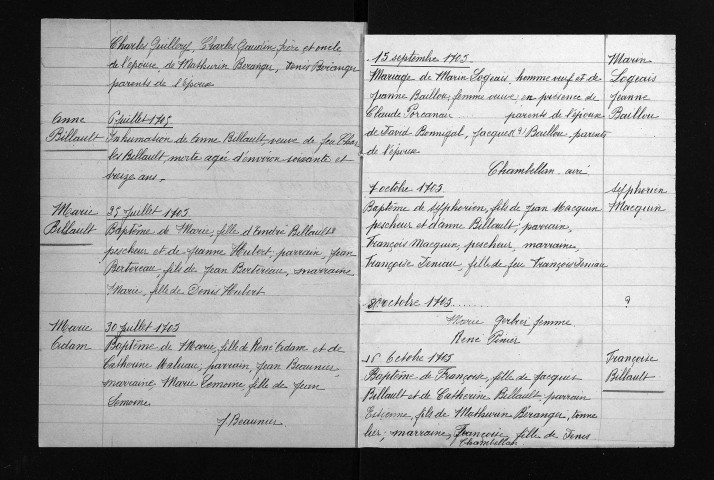 Charles Guillery, Charles Gaudin, frère et oncle
de l'épouse, de Mathurin Beranger, Denis Beranger
parents de l'époux
Anne
Billault
6 juillet 1705
Inhumation de Anne Billault, veuve de feu Char
les Billault, morte agée d'environ soixante et
treize ans.
Marie
Billault
25 juillet 1705
Baptême de Marie, fille d'André Billault
pescheur et de Jeanne Hubert, parrain, Jean
Bertereau, fils de Jean Bertereau, marraine
Marie, fille de Denis Hubert
Marie
Adam
30 juillet 1705
Baptême de Marie, fille de René Adam et de
Catherine Maleau, parrain, Jean Beaunier,
marraine, Marie Lemoine fille de Jean
Lemoine
J Beaunier.
15 septembre 1705
Mariage de Marin Logeais, homme veuf et de
Jeanne Baillou, femme veuve, en présence de
Claude parents de l'épouse
de David Bonnigal, Jacques Baillou, parents
de l'époux
Chambellan curé
Marin
Logeais
Jeanne
Baillou
7 octobre 1705
Baptême de Sylphorien, fils de Jean Macquin
pescheur et d'Anne Billault, parrain,
François Macquin, pescheur, marraine,
Françoise Deniau, fille de feu François Deniau
Sylphorien
Macquin
octobre 1705......
Marie femme
René
?
16 Octobre 1705
Baptême de Françoise, fille de Jacques
Billault et de Catherine Billault, parrain
Etienne, fils de Mathurin Beranger, tonne
lier, marraine, Françoise, fille de Denis
Chambellan
Françoise
Billault